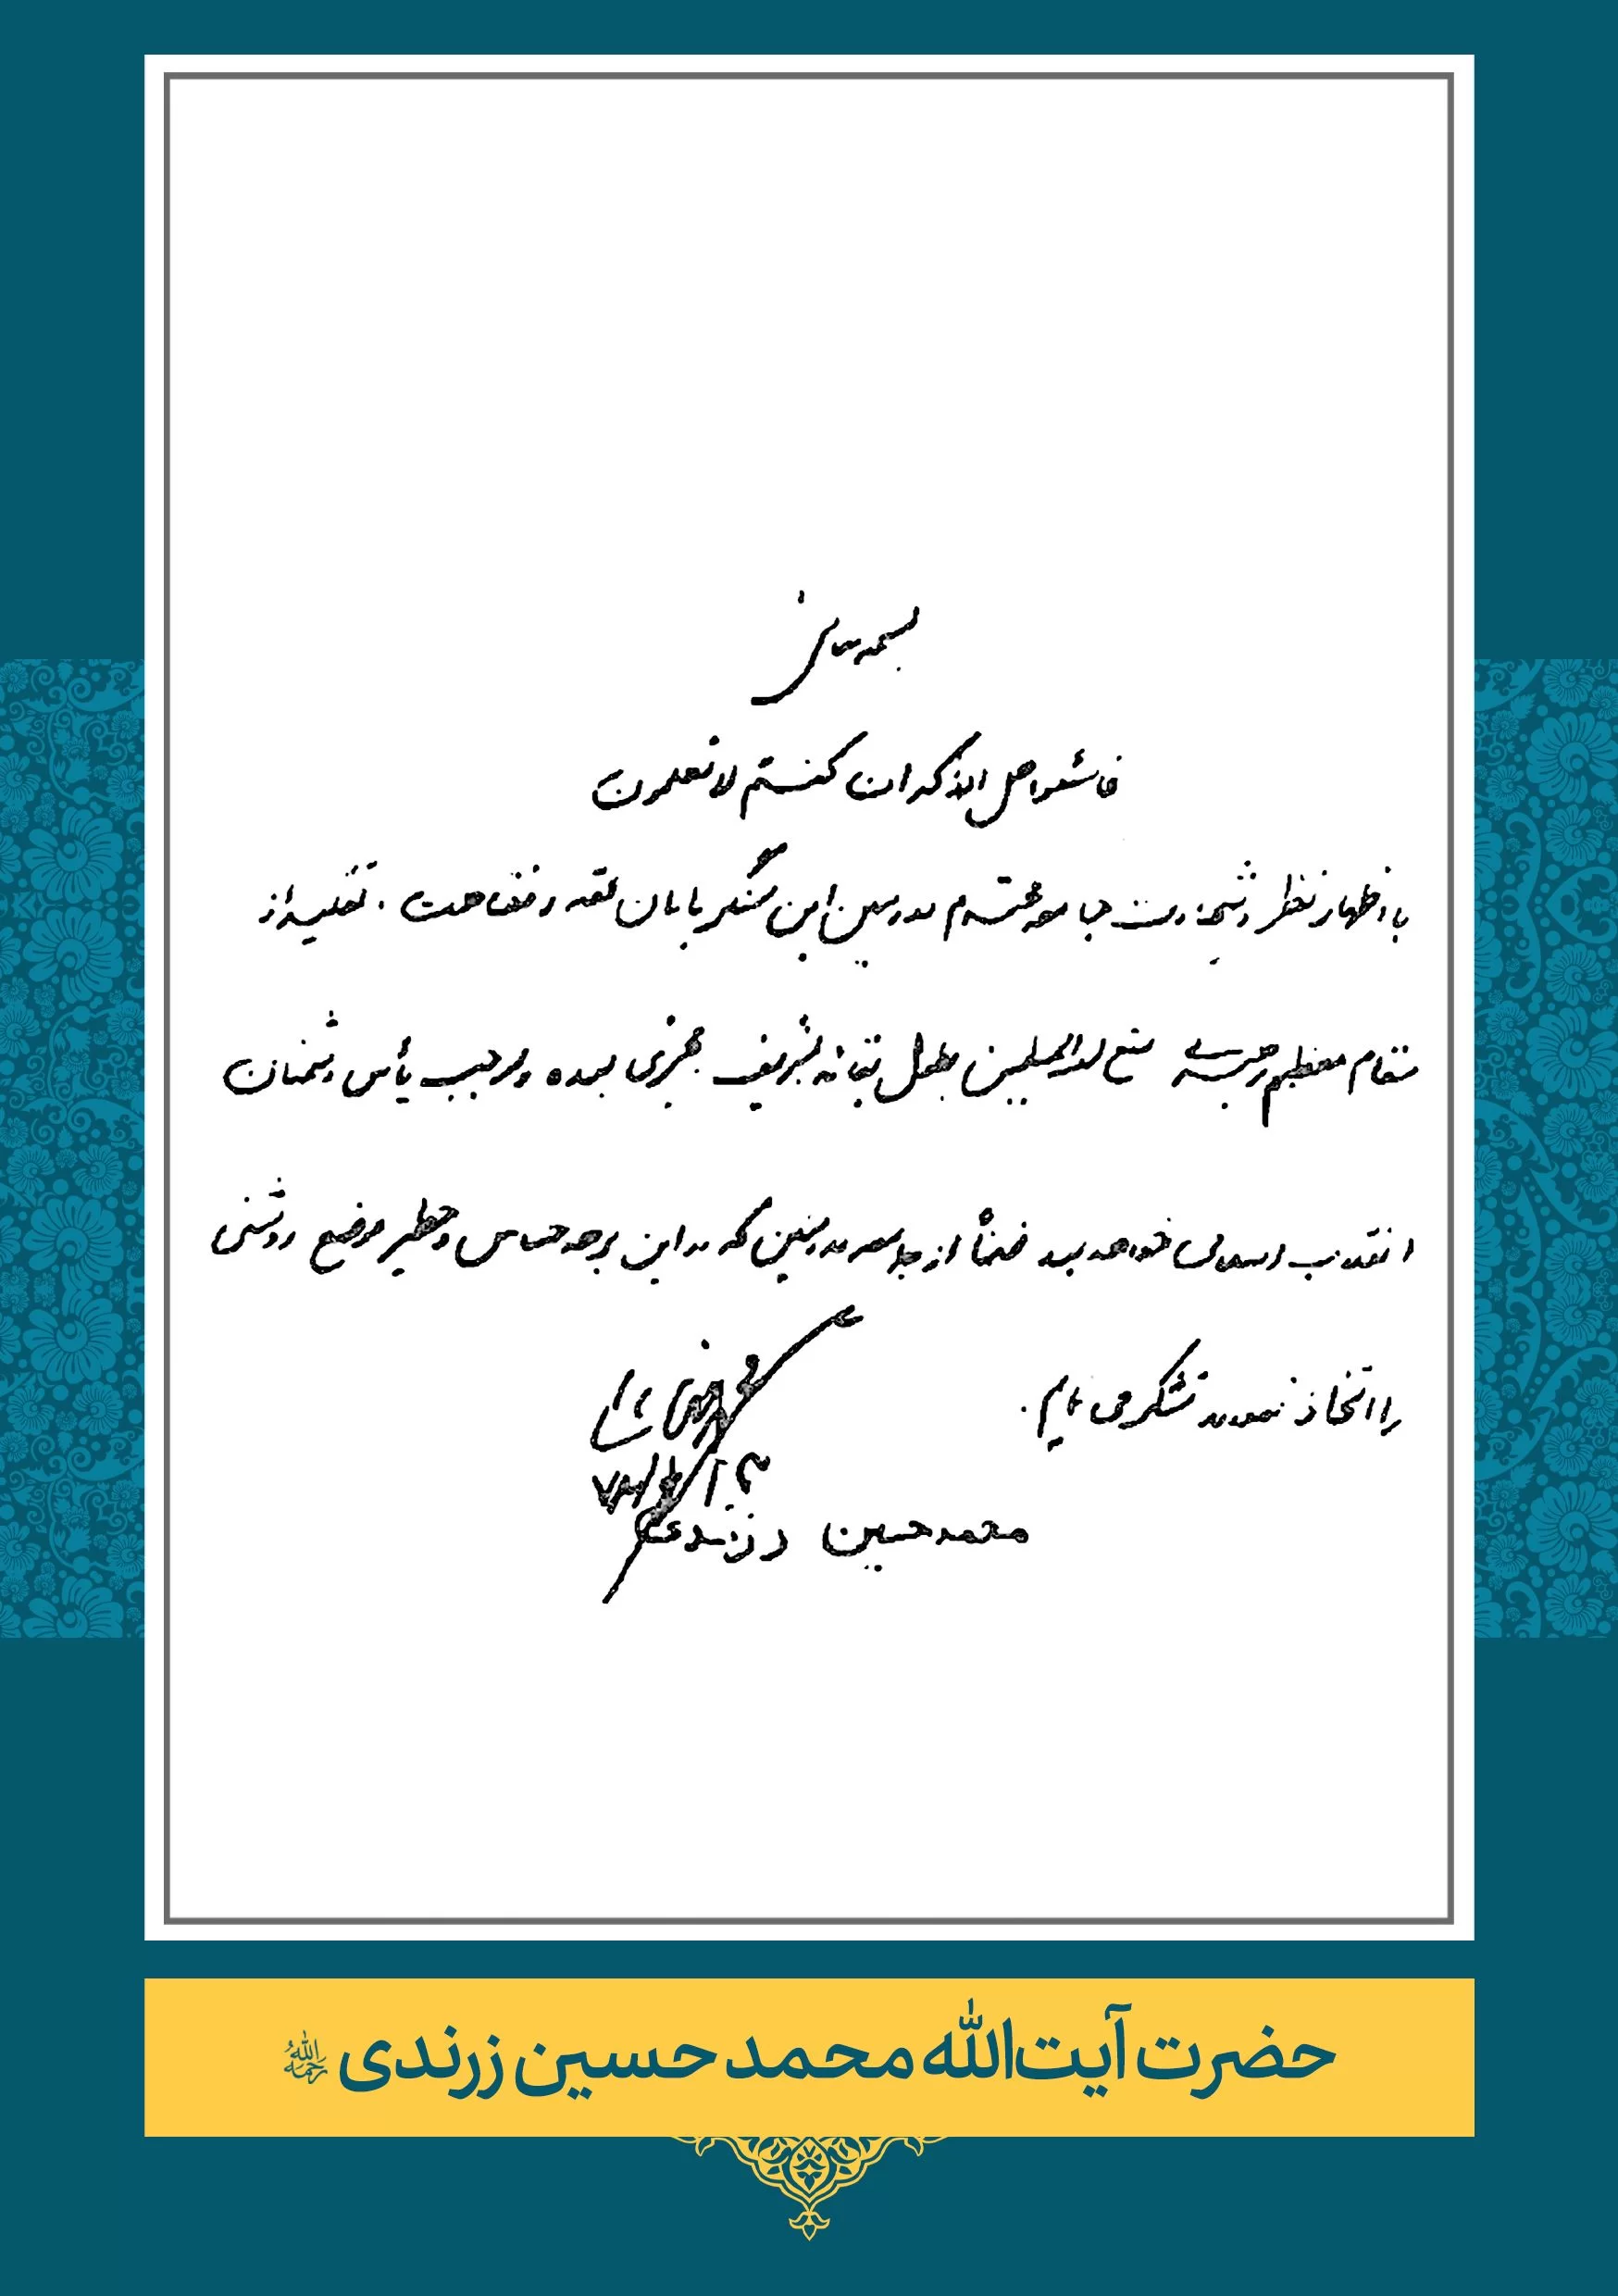 بسمه تعالی
فاسئلوا اهل الذکر ان کنتم لا تعلمون
با اظهار نظر و تشخیص جامعه محترم مدرسین این سنگربانان فقه و فقاهت، تقلید از
مقام معظم رهبری متع الله المسلمین بطول بقائه الشریف مجزی بوده و موجب یأس دشمنان
انقلاب اسلامی خواهد بود ضمناً از جامعه مدرسین که در این برهه حساس و خطیر موضع روشنی
را اتخاذ نمودند تشکر می نمایم.
محمد حسین زرندی
حضرت آیت‌الله محمدحسین زرندی رحمه الله